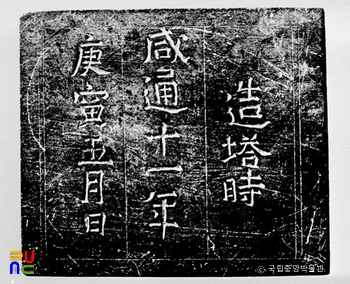 造塔時
咸通十一年
庚寅五月日
© 국립중앙박물관